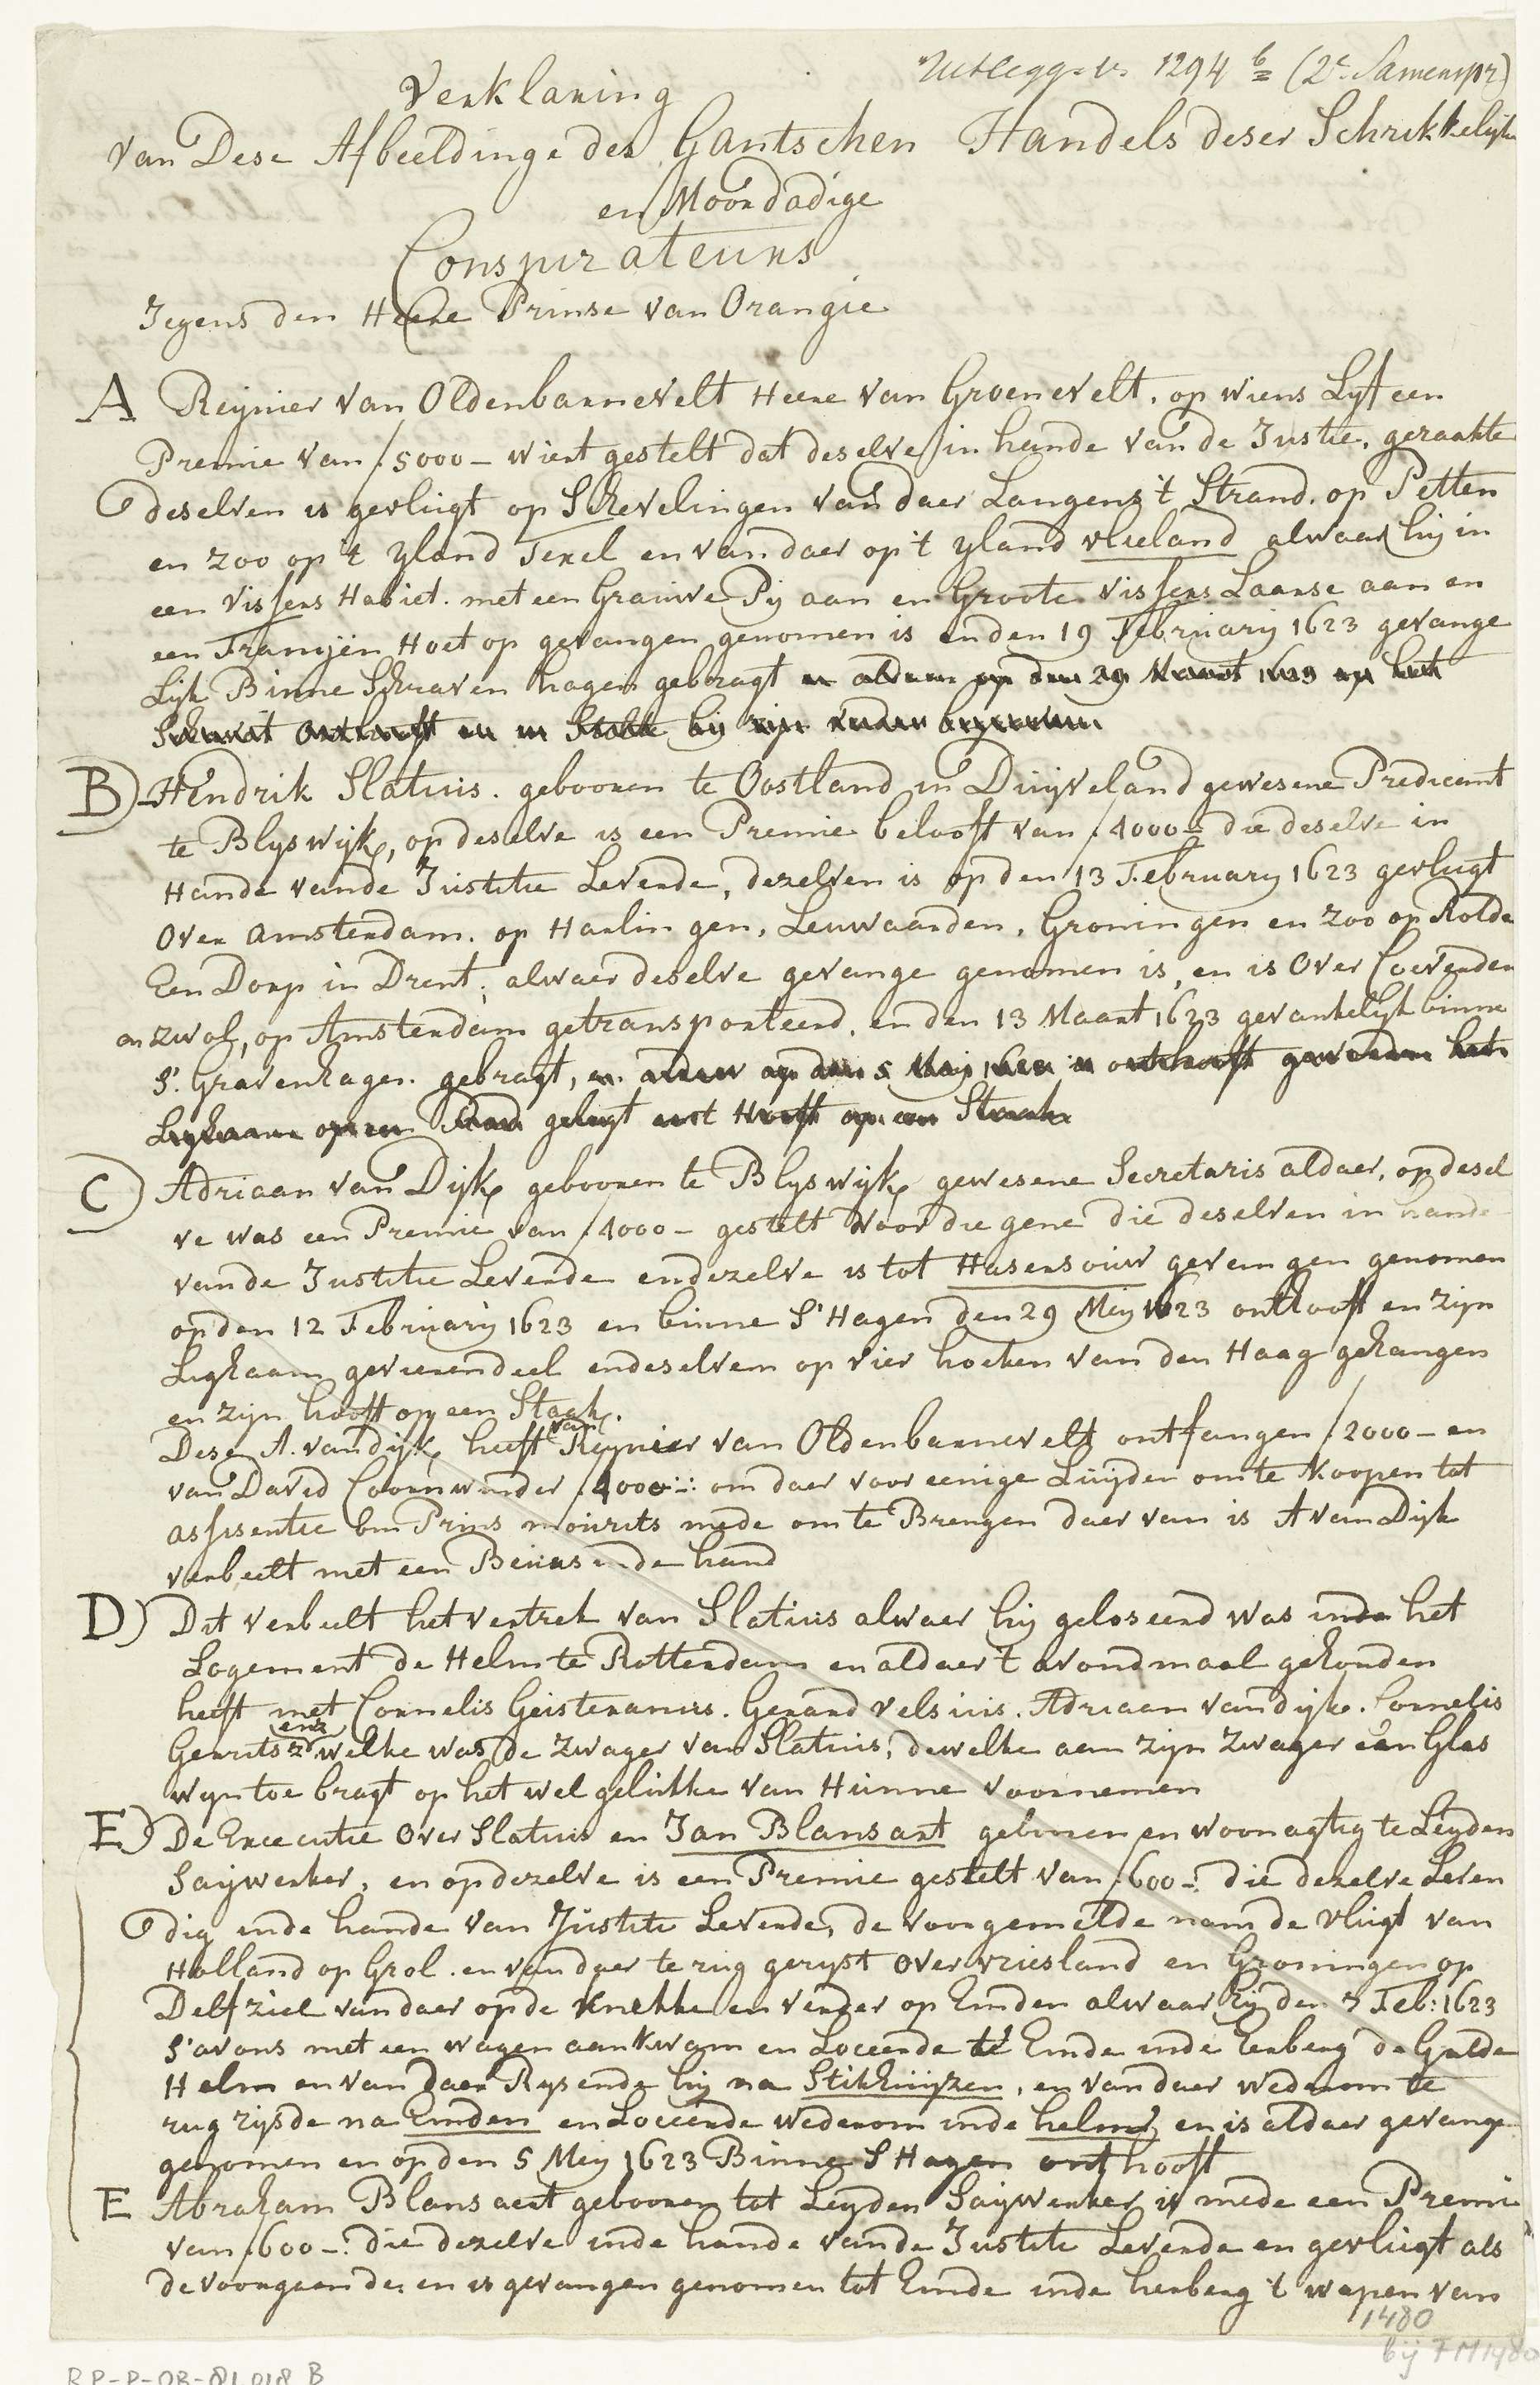 Uitlegg. v. 1294 b (2e Samenspr)
Verklaring
van Dese Afbeeldinge des Gantschen Handels deser Schrikkelijke
en Moordadige
Conspirateurs
Jegens den Heere Prinse van Orangie
A Reijnier van Oldenbarnevelt Heere van Groenevelt, op wiens Lyf een
Premie van ƒ5000 - wiert gestelt dat deselve in hande van de Justie, geraakte
deselven is gevlugt op Schevelingen van daer Langens 't Strand. op Petten
en zoo op 't yland Texel en van daer op 't yland vlieland alwaar hij in
een Vissers Habiet. met een Grauwe Pij aan en Groote Vissers Laarse aan en
een Franijen Hoet op gevangen genomen is en den 19 February 1623 gevange
Lijk Binne Schraven hagen gebragt en aldaer op den 29 Maart 1623 op het
Schavot Onthooft en in
B) Hendrik Slatius. gebooren te Oostland in Duijveland gewesene Predicant
te Blyswijk, op deselve is een Premie belooft van ƒ4000 - die deselve in
Hande vande Justitie Leverde, dezelven is op den 13 February 1623 gevlugt
Over Amsterdam. op Harlingen, Leuwaarden, Groningen en zoo op Rolde
Een Dorp in Drent; alwaer deselve gevange genomen is, en is Over Coeverden
en zwol, op Amsterdam getransporteerd, en den 13 Maart 1623 gevankelijk binne
S'. Gravenhagen. gebragt, en aldaer op den 5 Meij 1623 is onthooft geworden het
Lighaam op een Rad gelegt en t Hooft op een Staak
C) Adriaan van Dijk gebooren te Blyswijk gewesene Secretaris aldaer, op desel
ve was een Premie van ƒ4000 - gestelt voor die gene die deselven in hande
vande Justitie Leverde en dezelve is tot Hasersouw gevangen genomen
op den 12 February 1623 en binne S'Hagen den 29 Meij 1623 onthooft en zijn
Lighaam gevierendeel en deselven op vier hoeken van den Haag gehangen
en zijn hooft op een Staak.
Dese A. van dijk heeft van Reijnier van Oldenbarnevelt ontfangen ƒ2000 - en
van David Coornwinder ƒ4000 -: om daer voor eenige Luijden om te Koopen tot
assisentie om Prins mourits mede om te Brengen daer van is A van Dijk
verbeelt met een Beurs in de hand
D) Dit verbeelt het vertrek van Slatius alwaer hij geloseerd was inde het
Logement de Helm te Rotterdam en aldaer 't avondmaal gehouden
heeft met Cornelis Geisteranus. Gerard Velsius. Adriaan van dijk. Cornelis
Gerritszenz welke was de Zwager van Slatius, dewelke aen zijn Zwager een Glas
wyn toe bragt op het wel gelukke van Hunne voornemen
E) De Executie Over Slatius en Jan Blansart gebooren en woonagtig te Leyden
Saijwerker, en op dezelve is een Premie gestelt van ƒ600 -: die dezelve Leven
dig inde hande van Justitie Leverde, de voorgemelde nam de vlugt van
Holland op Grol. en van daer te rug geryst Over vriesland en Groningen op
Delfziel van daer op de Knekke en verder op Emden alwaar hij den 7 Feb: 1623
S'avons met een wagen aankwam en Loceerde te Emde inde Herberg de Gulde
Helm en van daer Rysende hij na Stikhuijzen, en van daer wederom te
rug rijsde na Emden en Loceerde wederom inde helm, en is aldaer gevange
genomen en op den 5 Meij 1623 Binne S Hagen onthooft
E Abraham Blansaert gebooren tot Leyden Saijwerker is mede een Premie
van ƒ600 -: die dezelve inde hande vande Justitie Leverde en gevlugt als
de voorgaende, en is gevangen genomen tot Emde inde herberg 't wapen van
1480
bij FM 1480
RP-P-OB-81.018 B